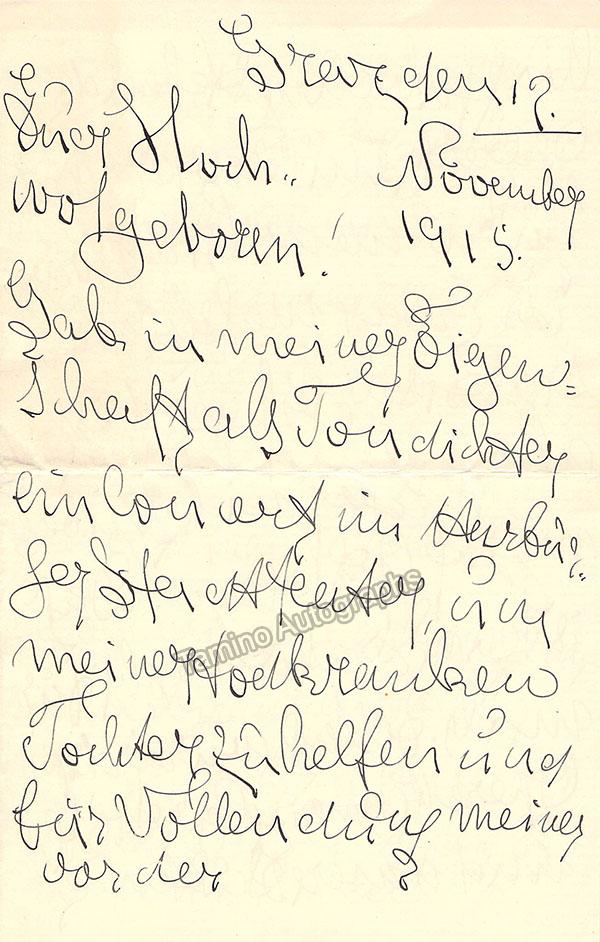 Drezden
Euer Hoch-
November
wolgeboren!
1915.
Gab in meiner Eigen=
schaft als Tondichter
ein Concert im Harbür=
ger Stadttheater, um
meiner todkranken
Tochter zu helfen und
für Vollendung meiner
vor der
Tamino Autographs